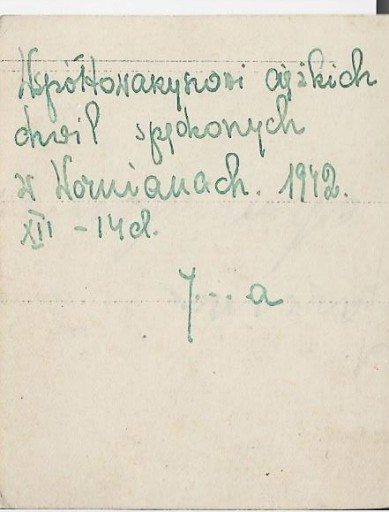 Współtowarzyszowi ciężkich
chwil spędzonych
w Wornianach. 1942.
XII - 14d.
J... a